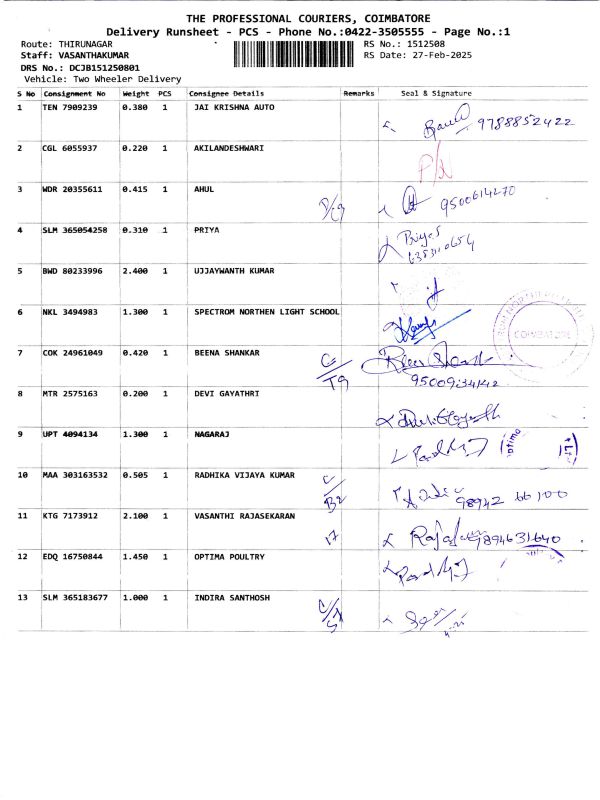 THE PROFESSIONAL COURIERS, COIMBATORE
Delivery Runsheet - PCS - Phone No.:0422-3505555 - Page No.:1
Route: THIRUNAGAR RS No.: 1512508
Staff: VASANTHAKUMAR RS Date: 27-Feb-2025
DRS No.: DCJB151250801
Vehicle: Two Wheeler Delivery
S No Consignment No Weight PCS Consignee Details Remarks Seal & Signature
1 TEN 7909239 0.380 1 JAI KRISHNA AUTO 9788852422
2 CGL 6055937 0.220 1 AKILANDESHWARI
3 WDR 20355611 0.415 1 AHUL 9500614270
4 SLM 365054258 0.310 1 PRIYA
5 BWD 80233996 2.400 1 UJJAYWANTH KUMAR
6 NKL 3494983 1.300 1 SPECTROM NORTHEN LIGHT SCHOOL COIMBATORE
7 COK 24961049 0.420 1 BEENA SHANKAR
8 MTR 2575163 0.200 1 DEVI GAYATHRI
9 UPT 4094134 1.300 1 NAGARAJ
10 MAA 303163532 0.505 1 RADHIKA VIJAYA KUMAR 98942 66100
11 KTG 7173912 2.100 1 VASANTHI RAJASEKARAN 17 9894631640
12 EDQ 16750844 1.450 1 OPTIMA POULTRY
13 SLM 365183677 1.000 1 INDIRA SANTHOSH